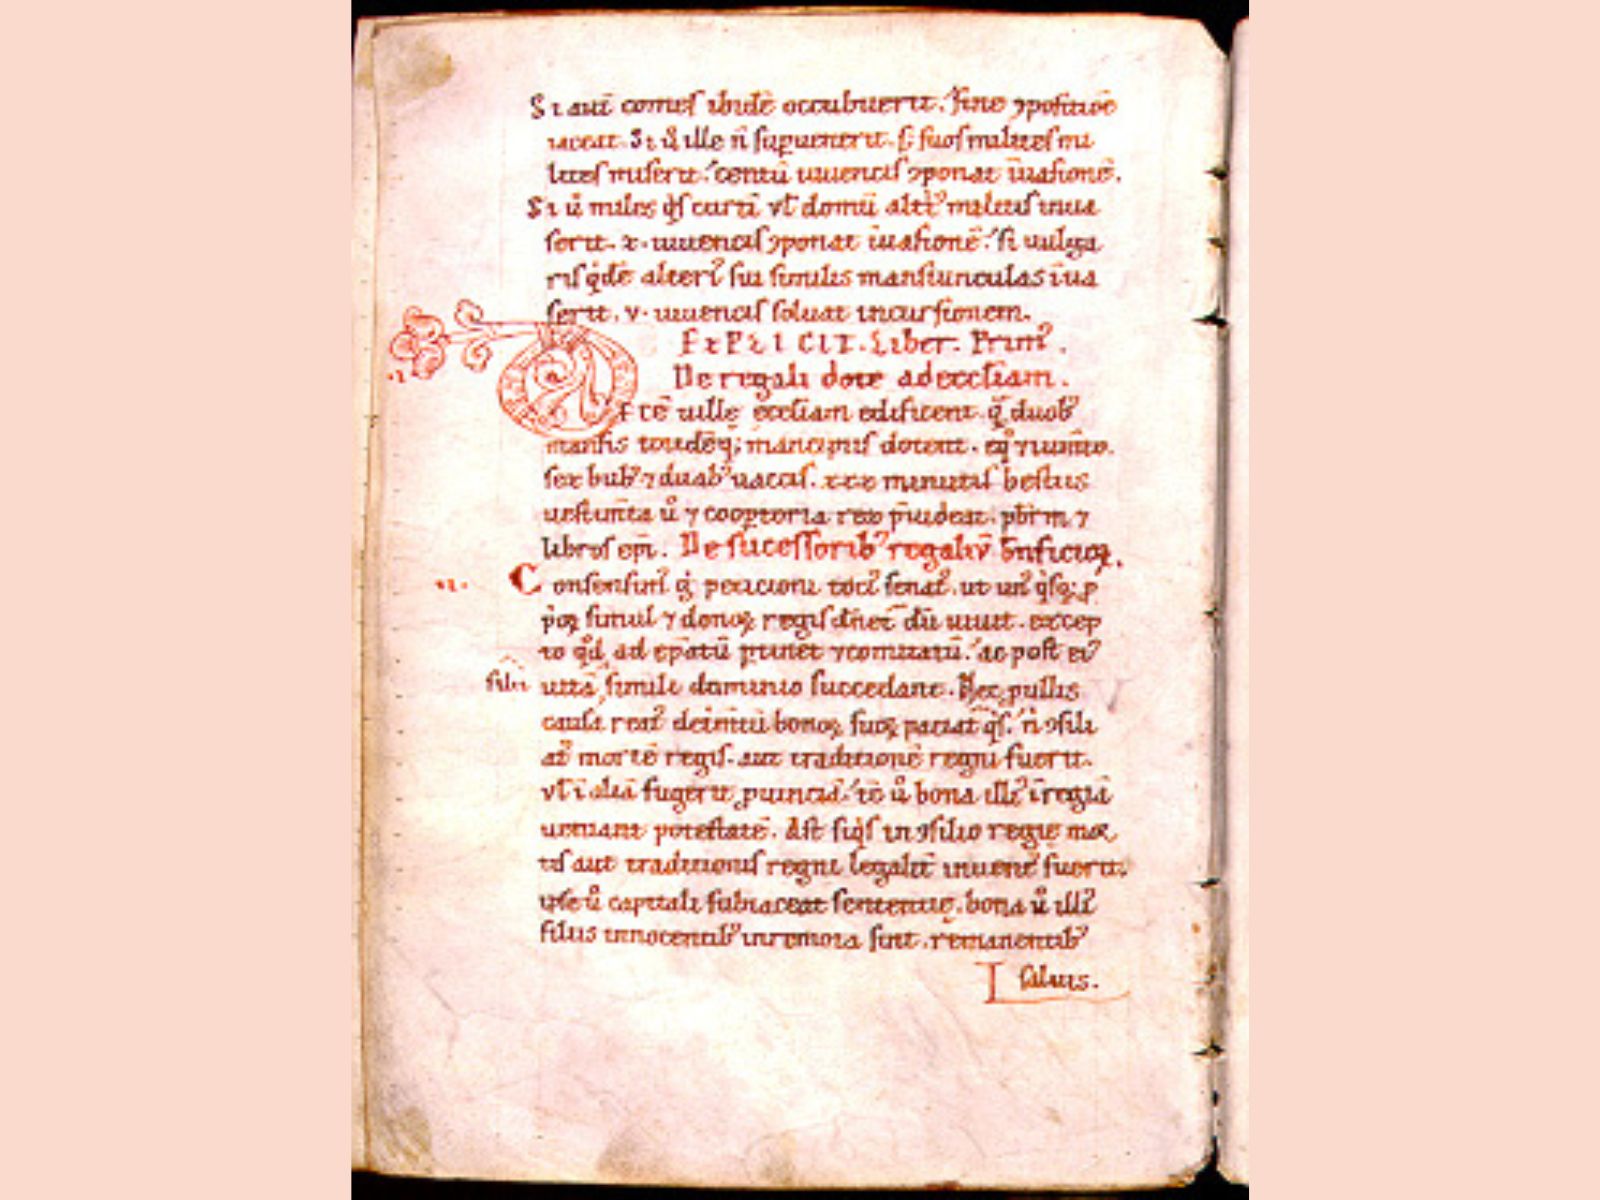 Si autē comes ibidē occubuerit. sine ꝯpositiōe
iaceat. Si ů ille n̄ supuenerit. s; suos milites mi
lites miserit. centū iuuencis ꝯponat īuasionē.
Si ů miles q̇s curtē vl domū altīꝰ militis inua
serit. x. iuuencis ꝯponat īuasionē. si uulga
ris q̇dē alteriꝰ sui similis mansiunculas īua
serit. v. iuuencis soluat incursionem.
EXPLICIT. Liber. Primꝰ.
De regali dote ad eccliam.
.I. DECĒ uillę eccliam edificent. q̄ duobꝰ
mansis totidēq; mancipiis dotent. eq̊ ⁊ iumēto
sex bubꝰ ⁊ duabꝰ uaccis. xxx minutis bestiis
uestim̄ta ů ⁊ cooptoria rex p̄uideat. pb̄rm ⁊
libros ep̄i. De sucessoribꝰ regaliū bn̄ficioꝝ.
.II. Consensimꝰ g̊ peticioni totiꝰ senatꝰ. ut unꝰ q̇sq; p
p̄oꝝ simul ⁊ donoꝝ regis dn̄et dū uiuit. excep
to qd̊ ad ep̄atū ptinet ⁊ comitatū. ac post eiꝰ
filii uitā simili dominio succedant. Nec pullis
causa reatꝰ detim̄tū bonoꝝ suoꝝ paciat̄ q̇s. n̄ ꝯsili
at̊ mortē regis. aut traditionē regni fuerit.
vl ī aliā fugerit puinciā. tc̄ ů bona illiꝰ ī regiā
ueniant potestatē. Ast siq̇s in ꝯsilio regię mor
tis aut traditionis regni legalit̄ inuentꝰ fuerit.
ipse ů capitali subiaceat sententię. bona ů illiꝰ
filiis innocentibꝰ inremota sint. remanentibꝰ
saluis.